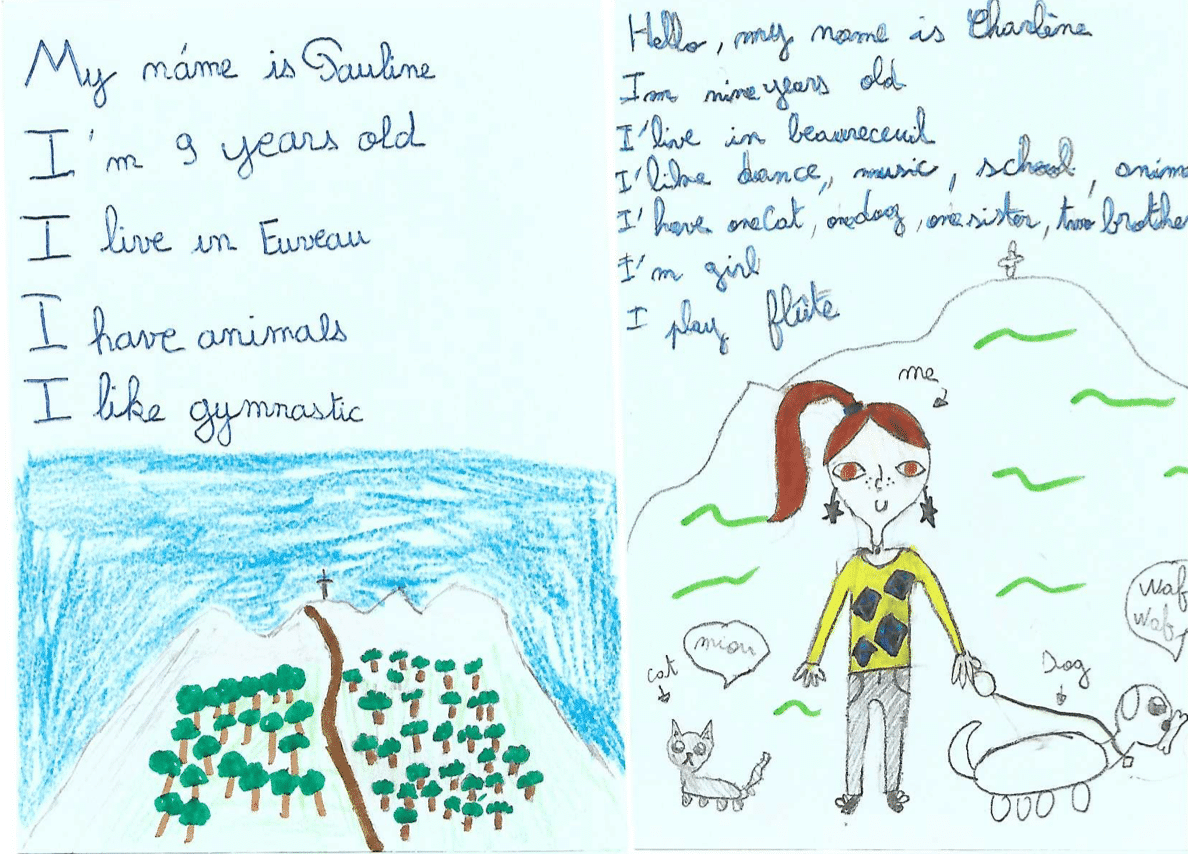 My náme is Pauline
I'm 9 years old
I live in Euveau
I have animals
I like gymnastic
Hello, my name is Charlène
I'm nine years old
I'live in beaureceuil
I'like dance, music, school, anima
I'have one cat, one dog, one sister, two brother
I'm girl
I play flûte
me
cat
miou
Dog
Waf
Waf